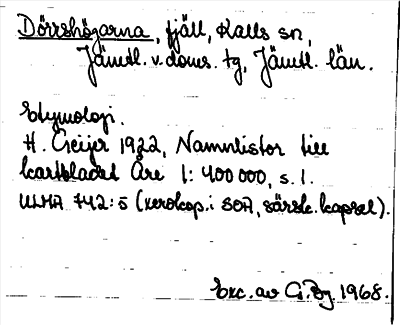 Dörrshögarna, fjäll, Kalls sn,
Jämtl. v. doms. tg, Jämtl. län.
Etymologi.
H. Geijer 1922, Namnlistor till
kartbladet Åre 1:400 000, s. 1.
ULMA 742:5 (xerokop. i SOA, särsk. kapsel).
Exc. av G. Bg. 1968.